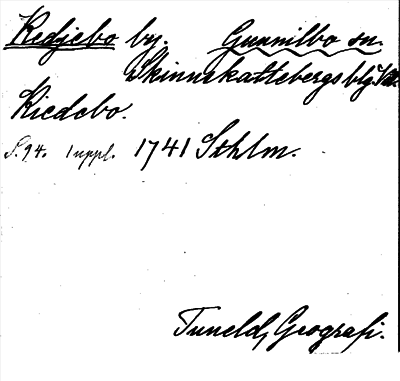 Kedjebo by. Gunnilbo sn.
Skinnskattebergs blg. Vm.
Kiedebo.
S. 94. 1 uppl. 1741 Sthlm.
Tuneld, Geografi.